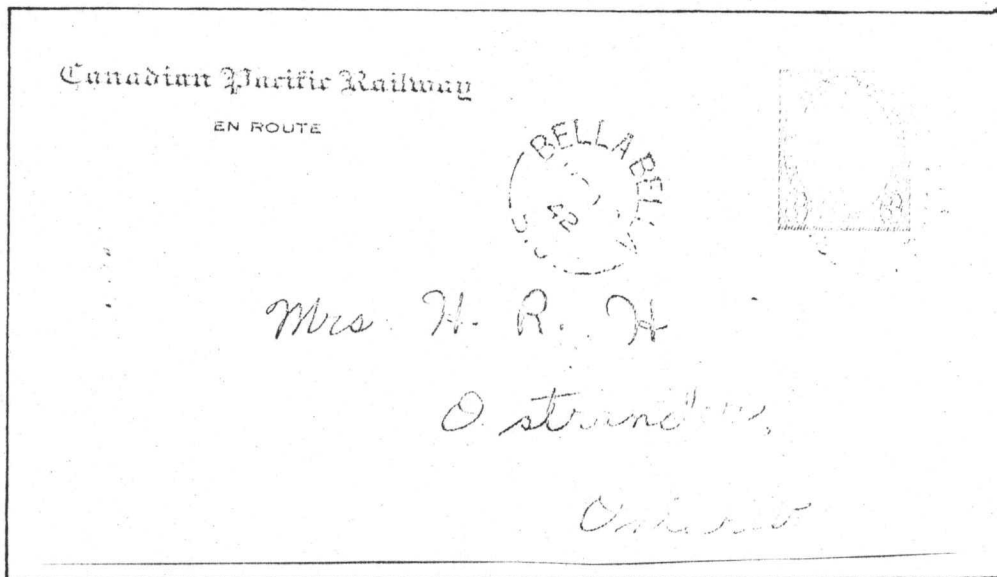 Canadian Pacific Railway
EN ROUTE
BELLA BELLA
42
B.C.
3
Mrs. H. R. H
Ostrander,
Ontario